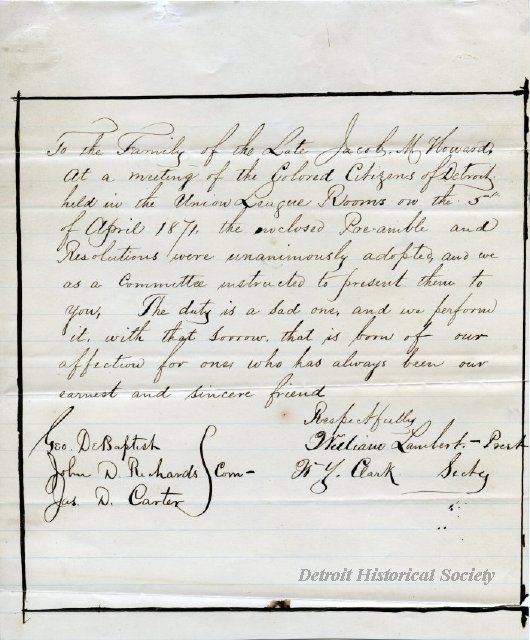 To the Family of the Late Jacob. M Howard,
At a meeting of the Colored Citizens of Detroit.
held in the Union League Rooms on the 5th
of April 1871, the enclosed Pre-amble and
Resolutions were unanimously adopted, and we
as a Committee instructed to present them to
you, The duty is a sad one, and we perform
it, with that sorrow, that is born of our
affection for one, who has always been our
earnest and sincere friend
Respectfully
Geo. DeBaptist
William Lambert. - Prest
John D. Richards } Com-
W Y. Clark Secty
Jas. D. Carter
Detroit Historical Society